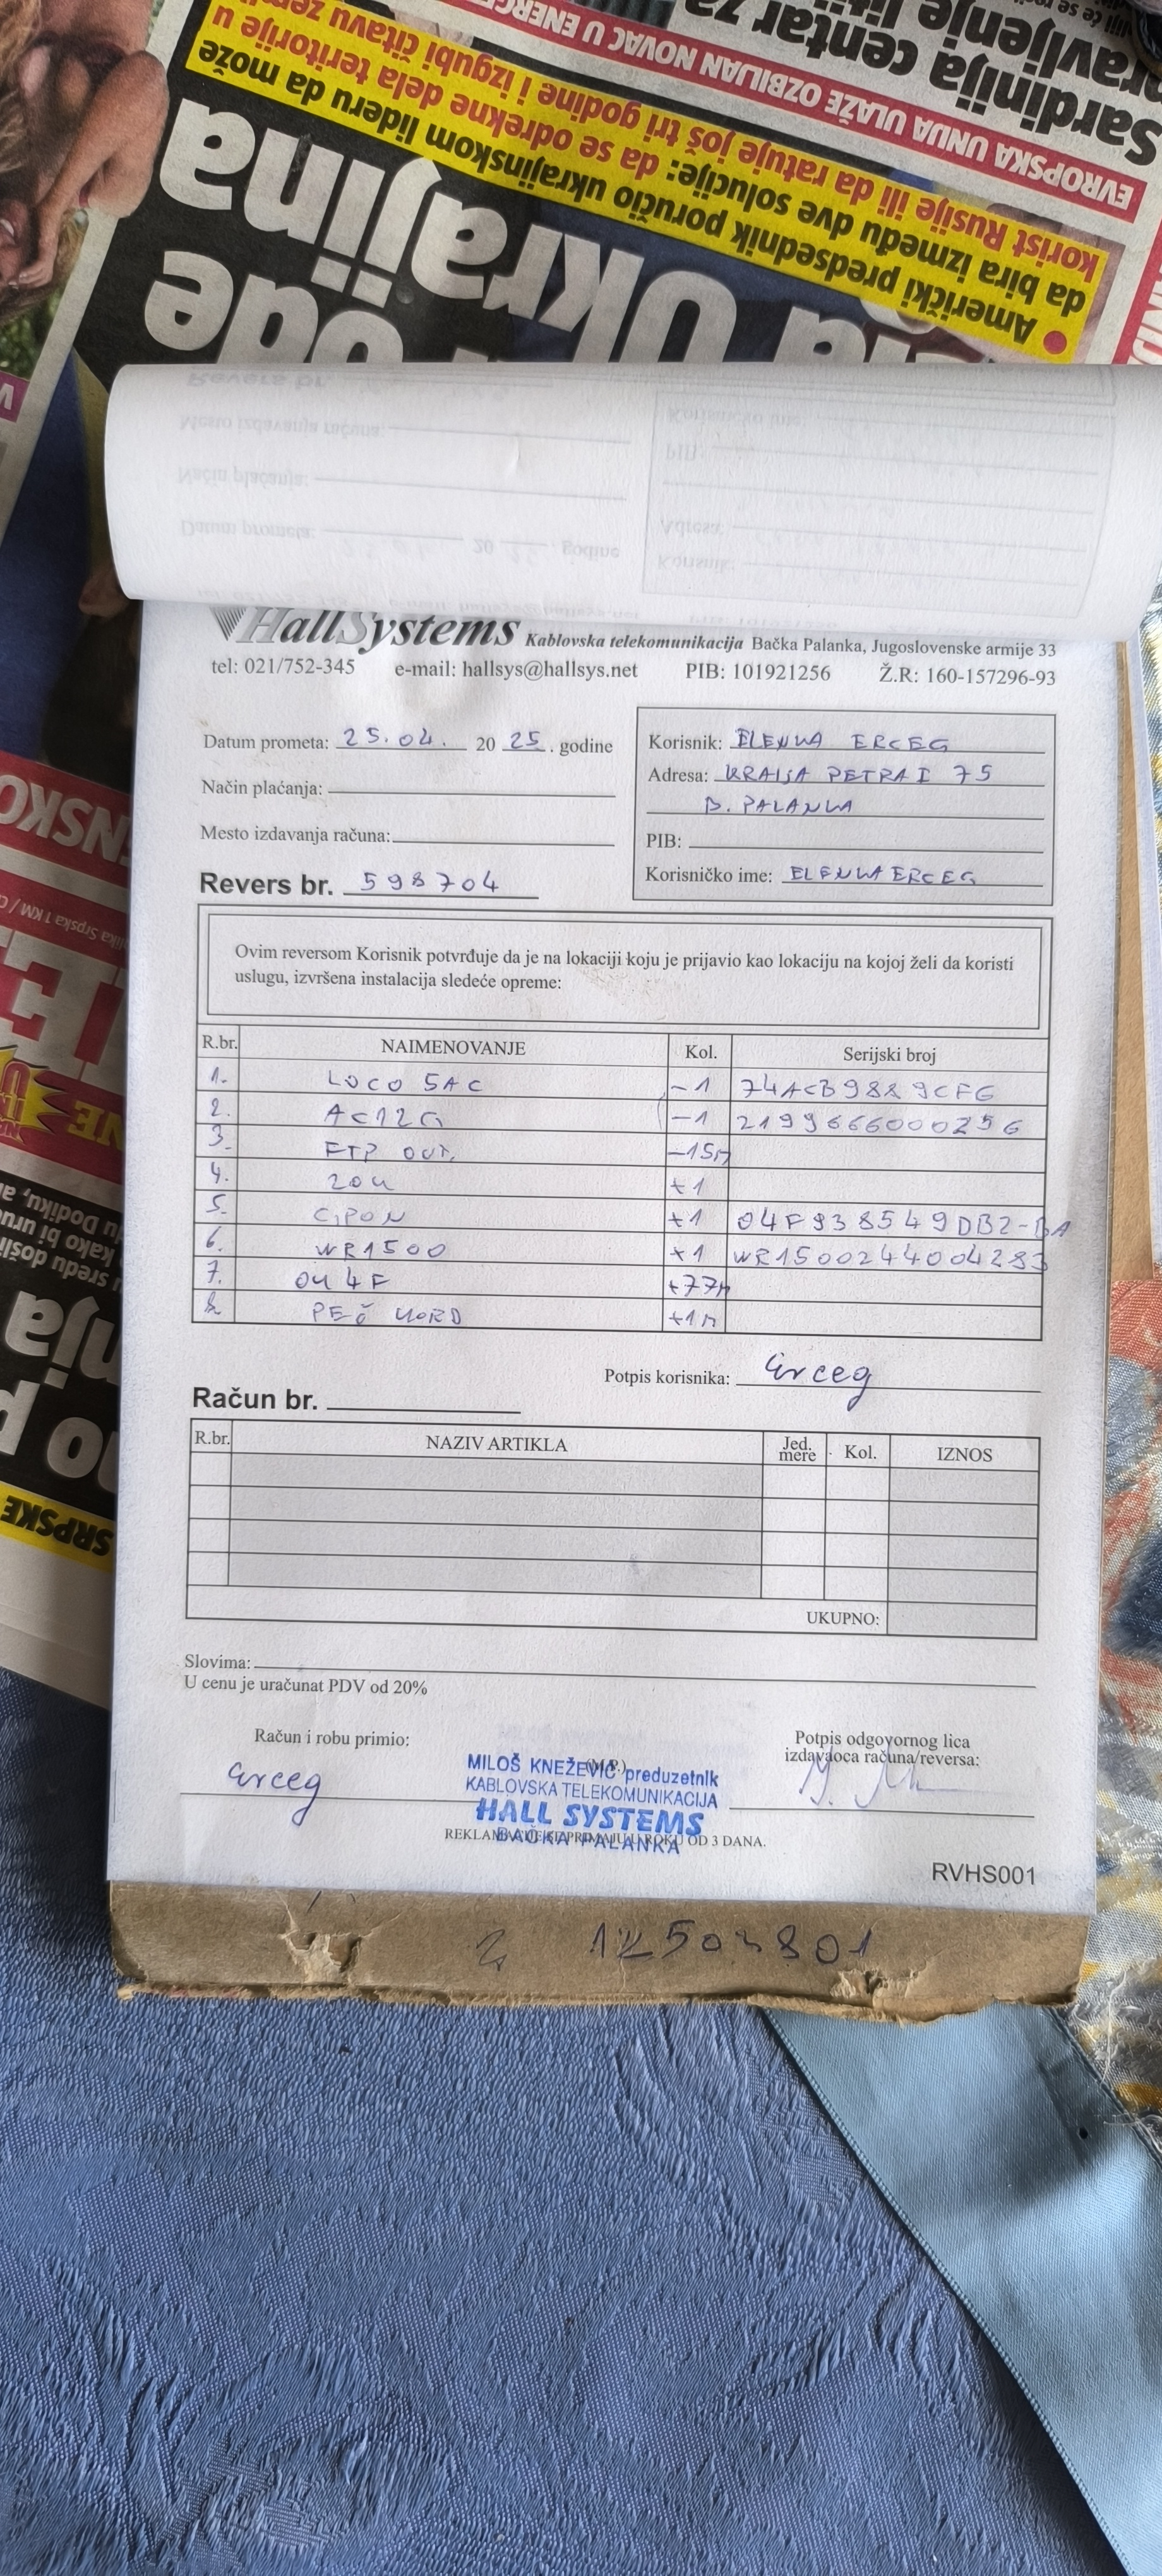 Sardinija centar za
EVROPSKA UNIJA ULAŽE OZBILJAN NOVAC U
Američki predsednik poručio ukrajinskom lideru da može
da bira između dve solucije: da se odrekne dela teritorije u
korist Rusije ili da ratuje još tri godine i izgubi čitavu
Ukrajina
HallSystems Kablovska telekomunikacija Bačka Palanka, Jugoslovenske armije 33
tel: 021/752-345 e-mail: hallsys@hallsys.net PIB: 101921256 Ž.R: 160-157296-93
Datum prometa: 25.04. 20 25. godine
Način plaćanja:
Mesto izdavanja računa:
Revers br. 598704
Korisnik: ELENKA ERCEG
Adresa: KRALJA PETRA I 75
B. PALANKA
PIB:
Korisničko ime: ELENKAERCEG
Ovim reversom Korisnik potvrđuje da je na lokaciji koju je prijavio kao lokaciju na kojoj želi da koristi
uslugu, izvršena instalacija sledeće opreme:
R.br. NAIMENOVANJE Kol. Serijski broj
1. LOCO 5AC -1 74ACB9889CFG
2. AC12G -1 2199666000256
3. FTP OUT. -15m
4. ZOK +1
5. GPON +1 04F938549DB2-BA
6. WR1500 +1 WR1500244004283
7. OK 4F +77m
8. PEČ KORD +1m
Potpis korisnika: Erceg
Račun br.
R.br. NAZIV ARTIKLA Jed. mere Kol. IZNOS
UKUPNO:
Slovima:
U cenu je uračunat PDV od 20%
Račun i robu primio:
Erceg
(M.P.)
Potpis odgovornog lica
izdavaoca računa/reversa:
MILOŠ KNEŽEVIĆ preduzetnik
KABLOVSKA TELEKOMUNIKACIJA
HALL SYSTEMS
BAČKA PALANKA
REKLAMACIJE SE PRIMAJU U ROKU OD 3 DANA.
RVHS001
SRPSKE